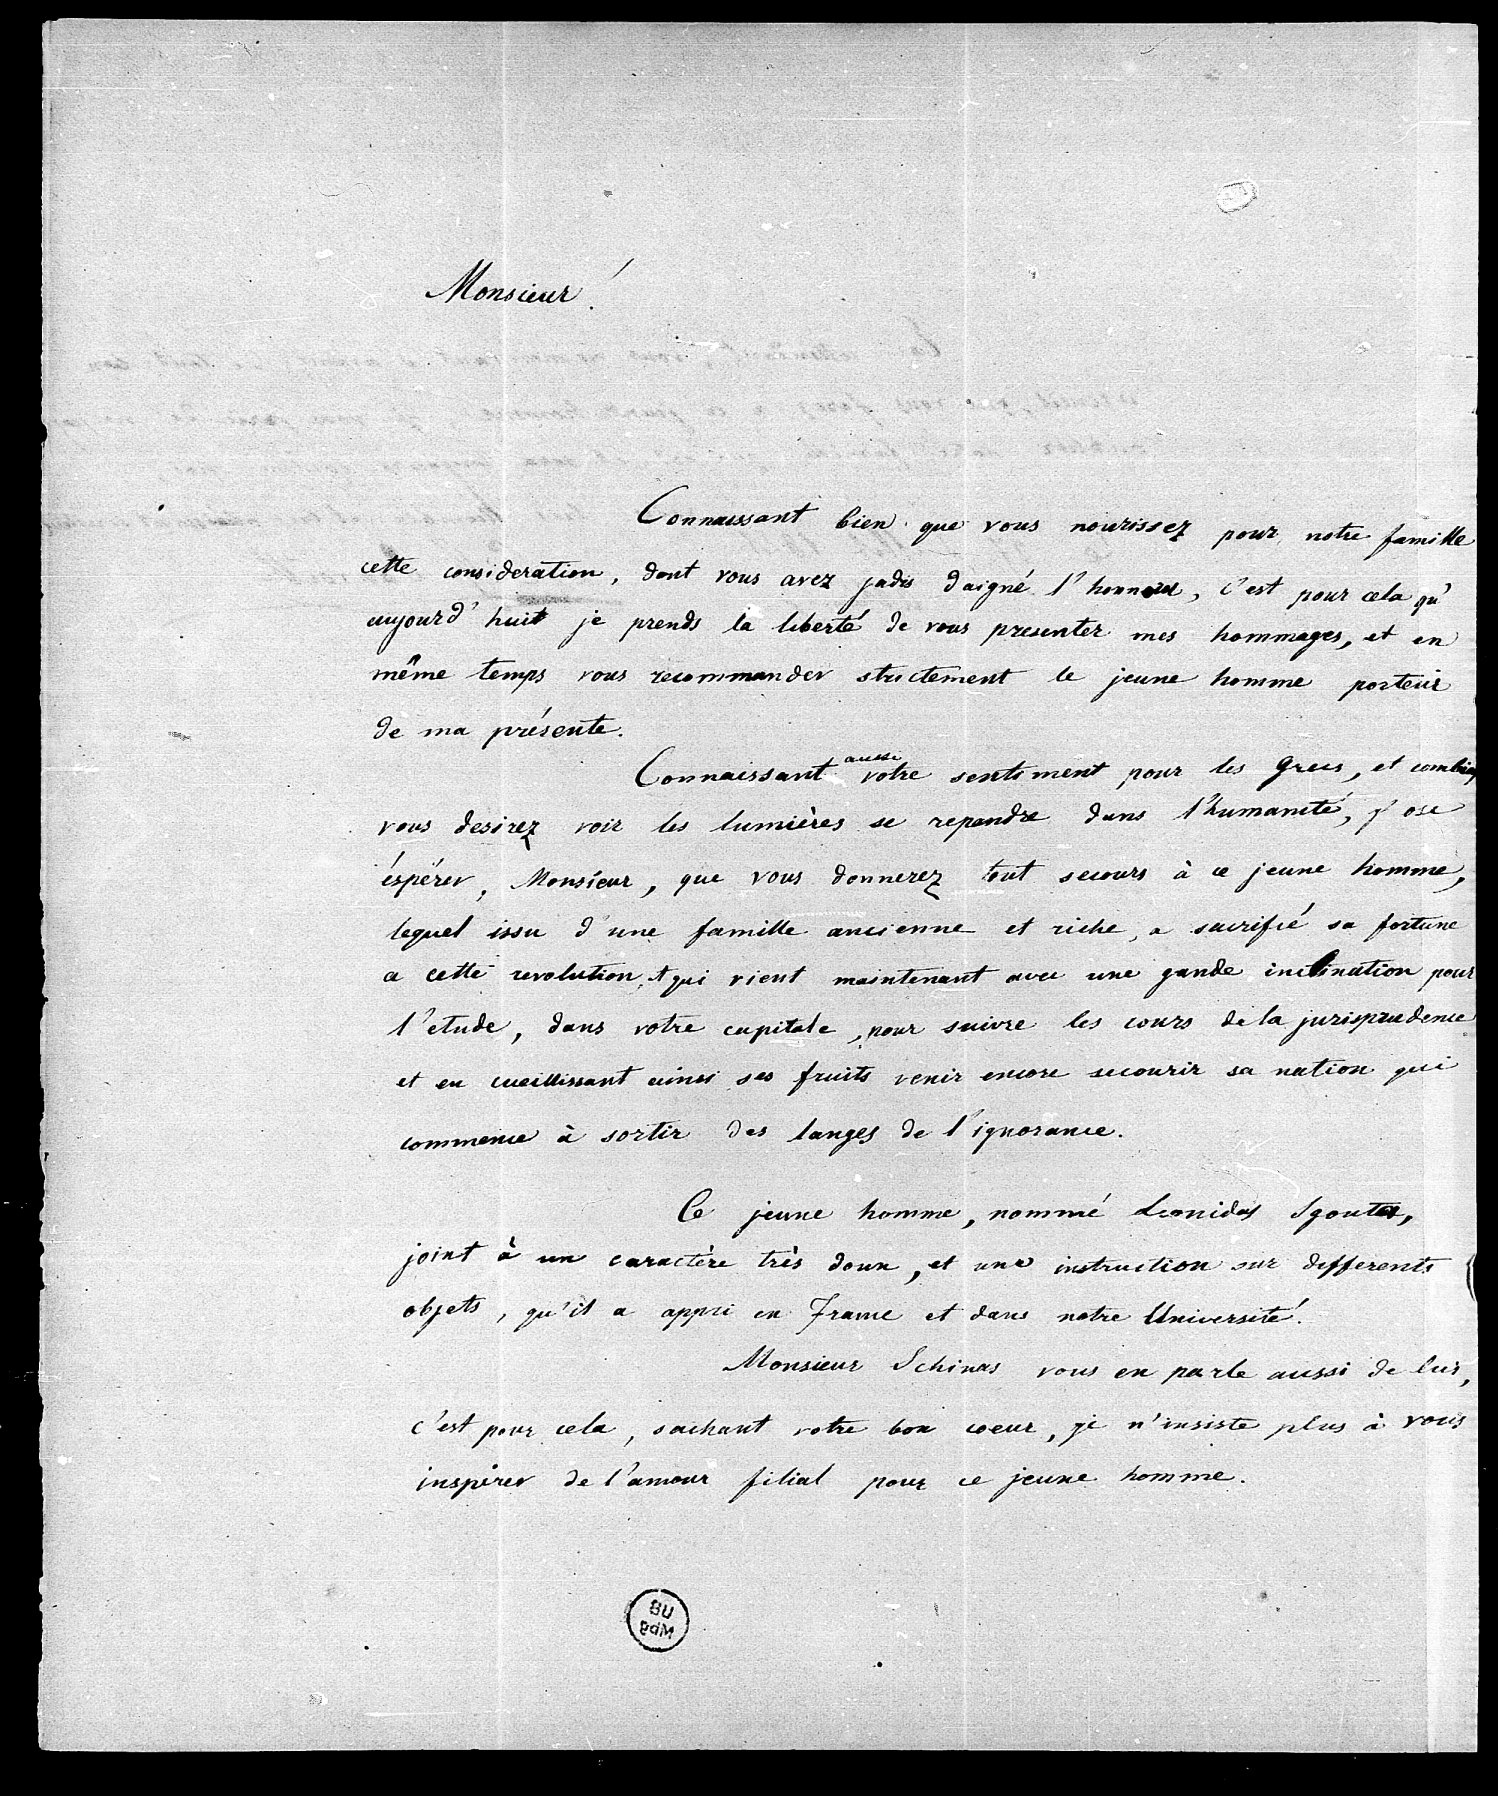 Monsieur!
Connaissant bien que vous nourissez pour notre famille
cette consideration, dont vous avez jadis daigné l'honnorer, c'est pour cela qu'
aujourd'huit je prends la liberté de vous presenter mes hommages, et en
même temps vous recommander strictement le jeune homme porteur
de ma présente.
Connaissant aussi votre sentiment pour les Grecs, et combien
vous desirez voir les lumières se rependre dans l'humanité, j'ose
éspérer, Monsieur, que vous donnerez tout secours à ce jeune homme,
lequel issu d'une famille ancienne et riche, a sacrifié sa fortune
a cette revolution, et qui vient maintenant avec une gande inclination pour
l'etude, dans votre capitale, pour suivre les cours de la jurisprudence
et en cueillissant ainsi ses fruits venir encore secourir sa nation qui
commence à sortir des langes de l'ignorance.
Ce jeune homme, nommé Leonidas Sgouta,
joint à un caractère très doux, et une instruction sur differents
objets, qu'il a appri en France et dans notre Université.
Monsieur Schinas vous en parle aussi de lui,
c'est pour cela, sachant votre bon coeur, je n'insiste plus à vous
inspirer de l'amour filial pour ce jeune homme.
BU
WPB